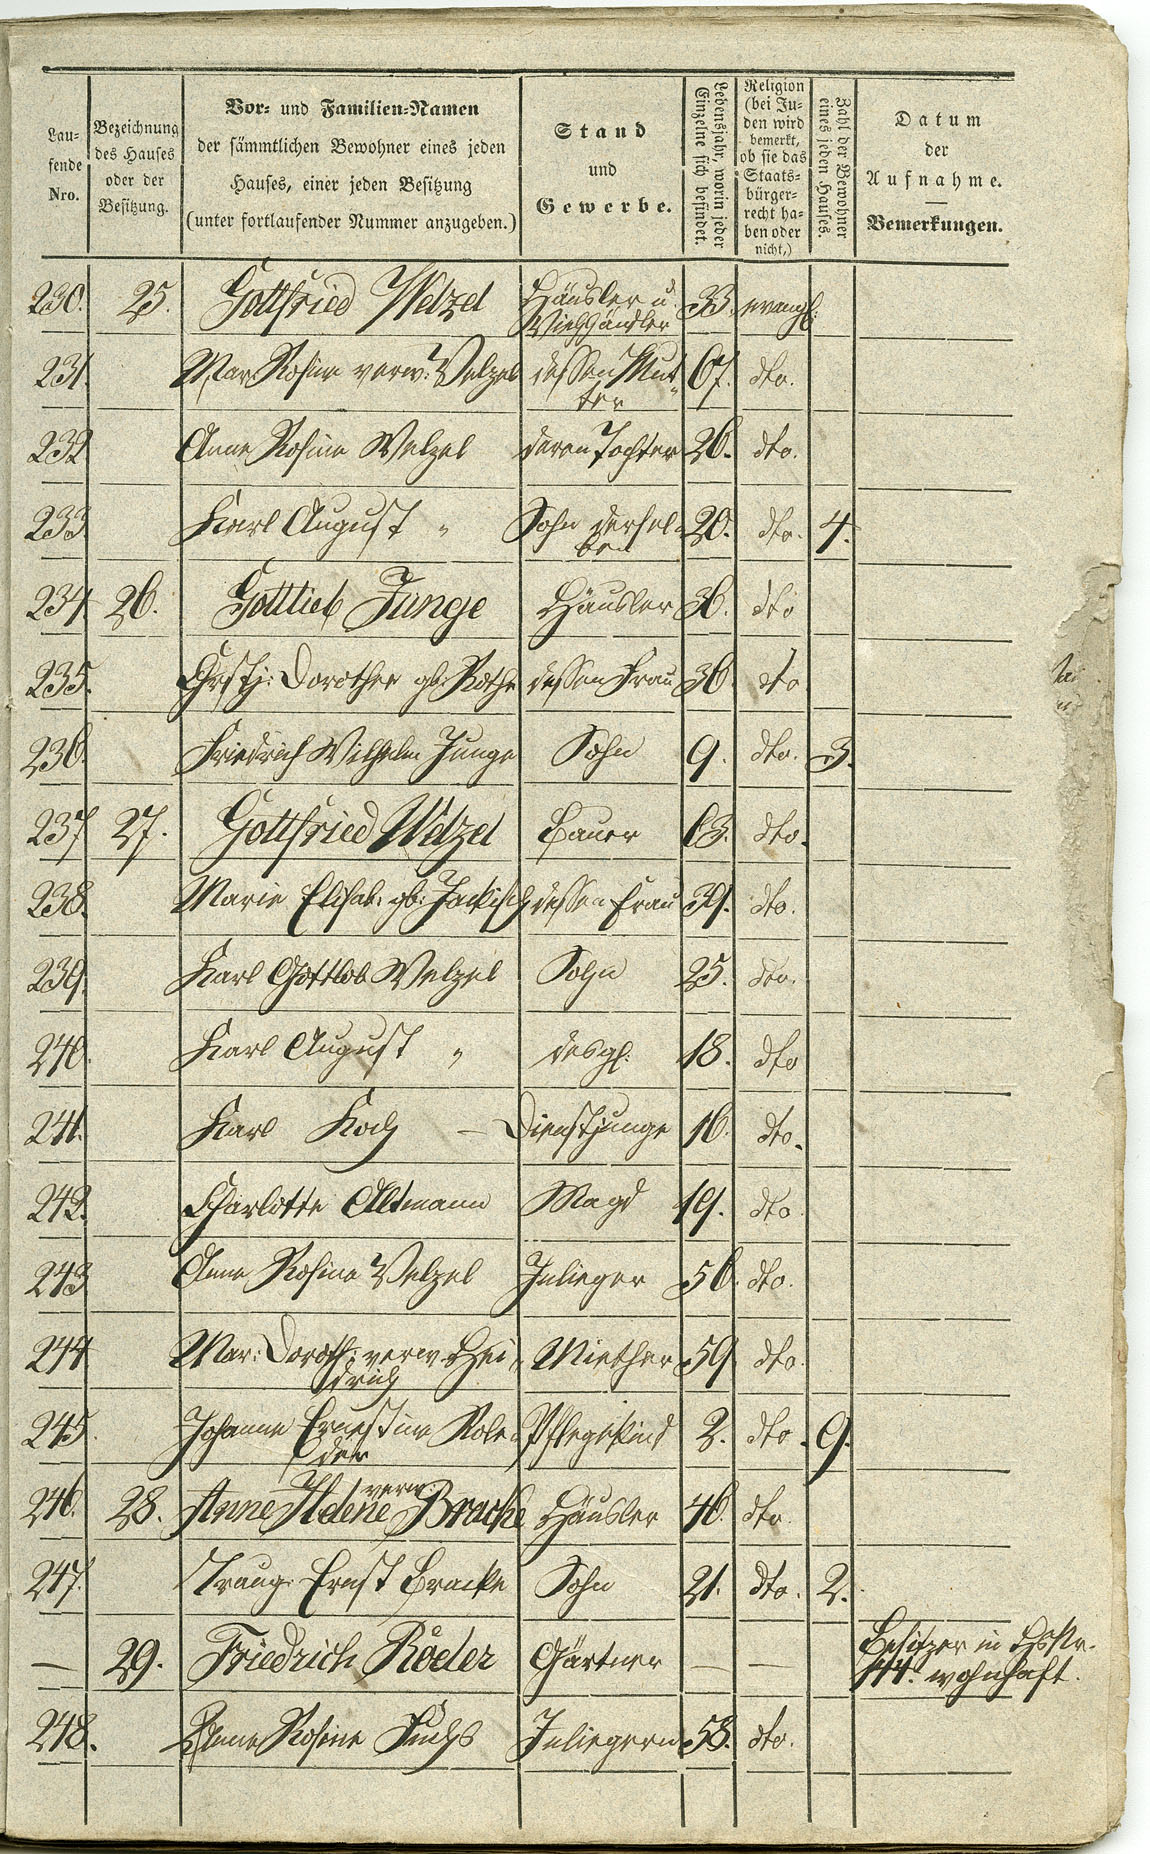 Lau-
fende
Nro.
Bezeichnung
des Hauses
oder der
Besitzung.
Vor- und Familien-Namen
der sämmtlichen Bewohner eines jeden
Hauses, einer jeden Besitzung
(unter fortlaufender Nummer anzugeben.)
Stand
und
Gewerbe.
Lebensjahr, worin jeder
Einzelne sich befindet.
Religion
(bei Ju-
den wird
bemerkt,
ob sie das
Staats-
bürger-
recht ha-
ben oder
nicht,)
Zahl der Bewohner
eines jeden Hauses.
Datum
der
Aufnahme.
Bemerkungen.
230. 25. Gottfried Welzel Häusler u. 33. evangl:
Viehhändler
231. Mar: Rosina verw: Welzel dessen Mut- 67. dto.
ter
232 Anna Rosina Welzel deren Tochter 26. dto.
233 Karl August " Sohn dersel- 20. dto. 4.
ben
234 26. Gottlieb Junge Häusler 36. dto
235. Christ: Dorothea gb: Rothe dessen Frau 36. dto
236. Friedrich Wilhelm Junge Sohn 9. dto. 3.
237 27. Gottfried Welzel Bauer 63. dto.
238. Marie Elisab: gb: Jackisch dessen Frau 39. dto.
239. Karl Gottlob Welzel Sohn 25. dto.
240. Karl August " desgl. 18. dto
241. Karl Koch — Dienstjunge 16. dto.
242. Charlotte Altmann Magd 19. dto
243 Anna Rosina Welzel Inlieger 56. dto.
244 Mar: Doroth: verw: Hei- Miether 59. dto.
drich
245. Johanne Ernestine Role- Pflegekind 2. dto. 9.
der
verw:
246. 28. Anne Helene Bracke Häusler 46. dto.
247. Traug. Ernst Bracke Sohn 21. dto. 2.
— 29. Friedrich Röder Gärtner — — Besitzer in HsNr.
44. wohnhaft.
248. Anna Rosine Fuchs Inliegerin 58. dto.